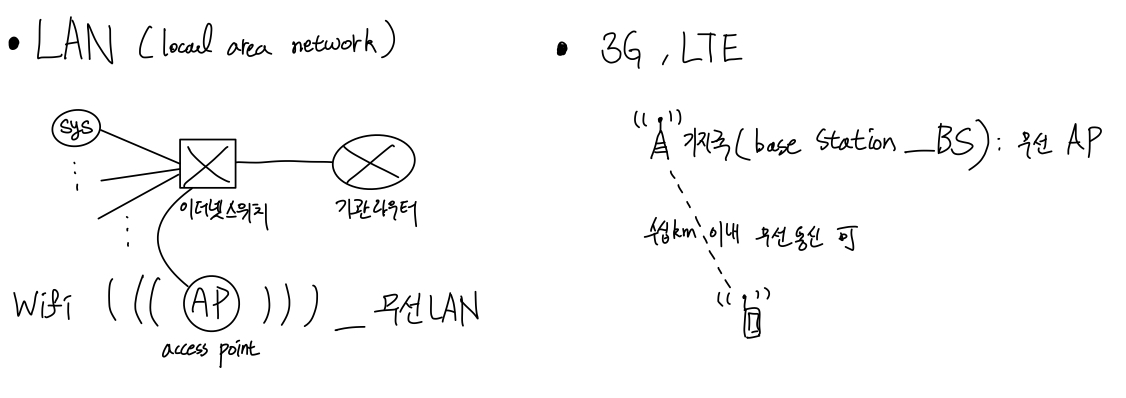 • LAN (local area network)
sys
이더넷스위치
기관라우터
Wifi ((( AP ))) _ 무선LAN
access point
• 3G, LTE
기지국(base station _BS): 무선 AP
수십km 이내 무선통신 可